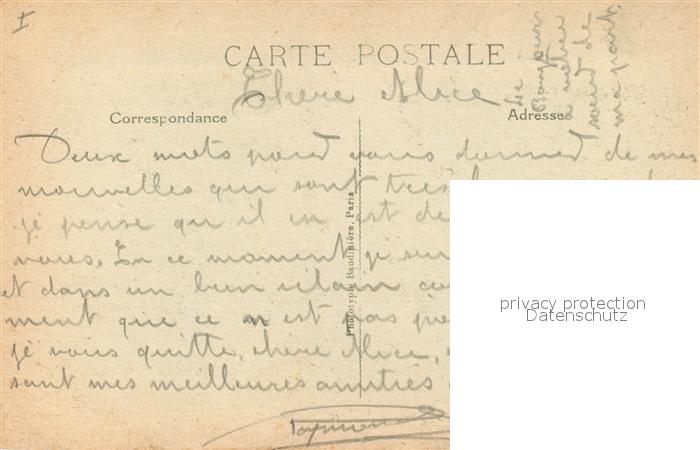 I
CARTE POSTALE
Chère Alice
Correspondance
Adresse
Deux mots pour vous donner de mes
nouvelles que sont très
je pense qu il en est de
vous, En ce moment je
et dans un bien
ment que ce n est pas
je vous quitte, chère Alice,
sont mes meilleures amitiés
Phototypie Baudinière, Paris
Bonjour
de
ma part
privacy protection
Datenschutz